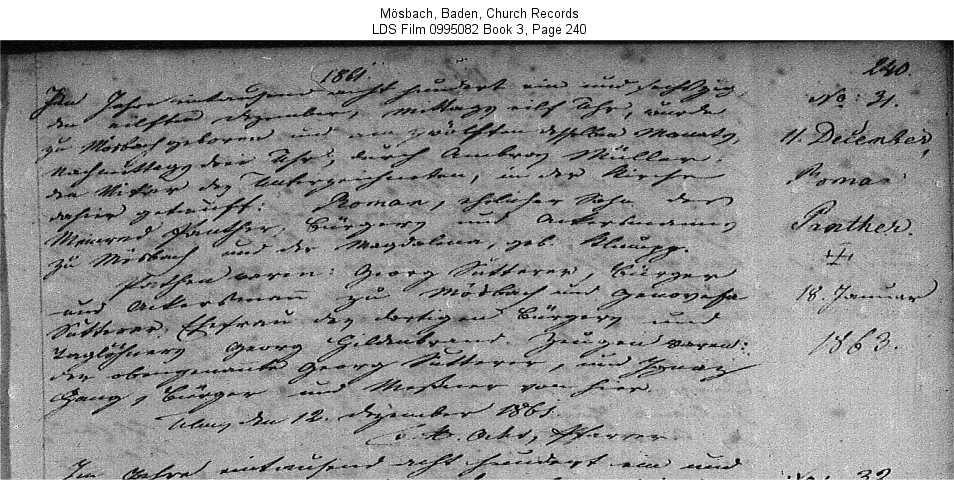 Mösbach, Baden, Church Records
LDS Film 0995082 Book 3, Page 240
240.
1861.
Im Jahre eintausend acht hundert ein und sechszig
den eilften Dezember, Mittags eilf Uhr, wurde
zu Mösbach geboren und am zwölften desselben Monats,
Nachmittags drei Uhr, durch Ambros Müller,
den Vikar des Unterzeichneten, in der Kirche
dahier getauft: Roman, ehelicher Sohn des
Meinrad Panther, Bürgers und Ackersmannes
zu Mösbach und der Magdalena, geb.
Pathen waren: Georg Sutterer, Bürger
und Ackersmann zu Mösbach und Genovefa
Sutterer, Ehefrau des dortigen Bürgers und
Taglöhners Georg Hildenbrand. Zeugen waren:
der obengenante Georg Sutterer, und Ignaz
Bürger und Meßner von hier.
den 12. Dezember 1861.
Pfarrer
No: 31.
11. December,
Roman
Panther.
18. Januar
1863.
Im Jahre eintausend acht hundert ein und
No: 32